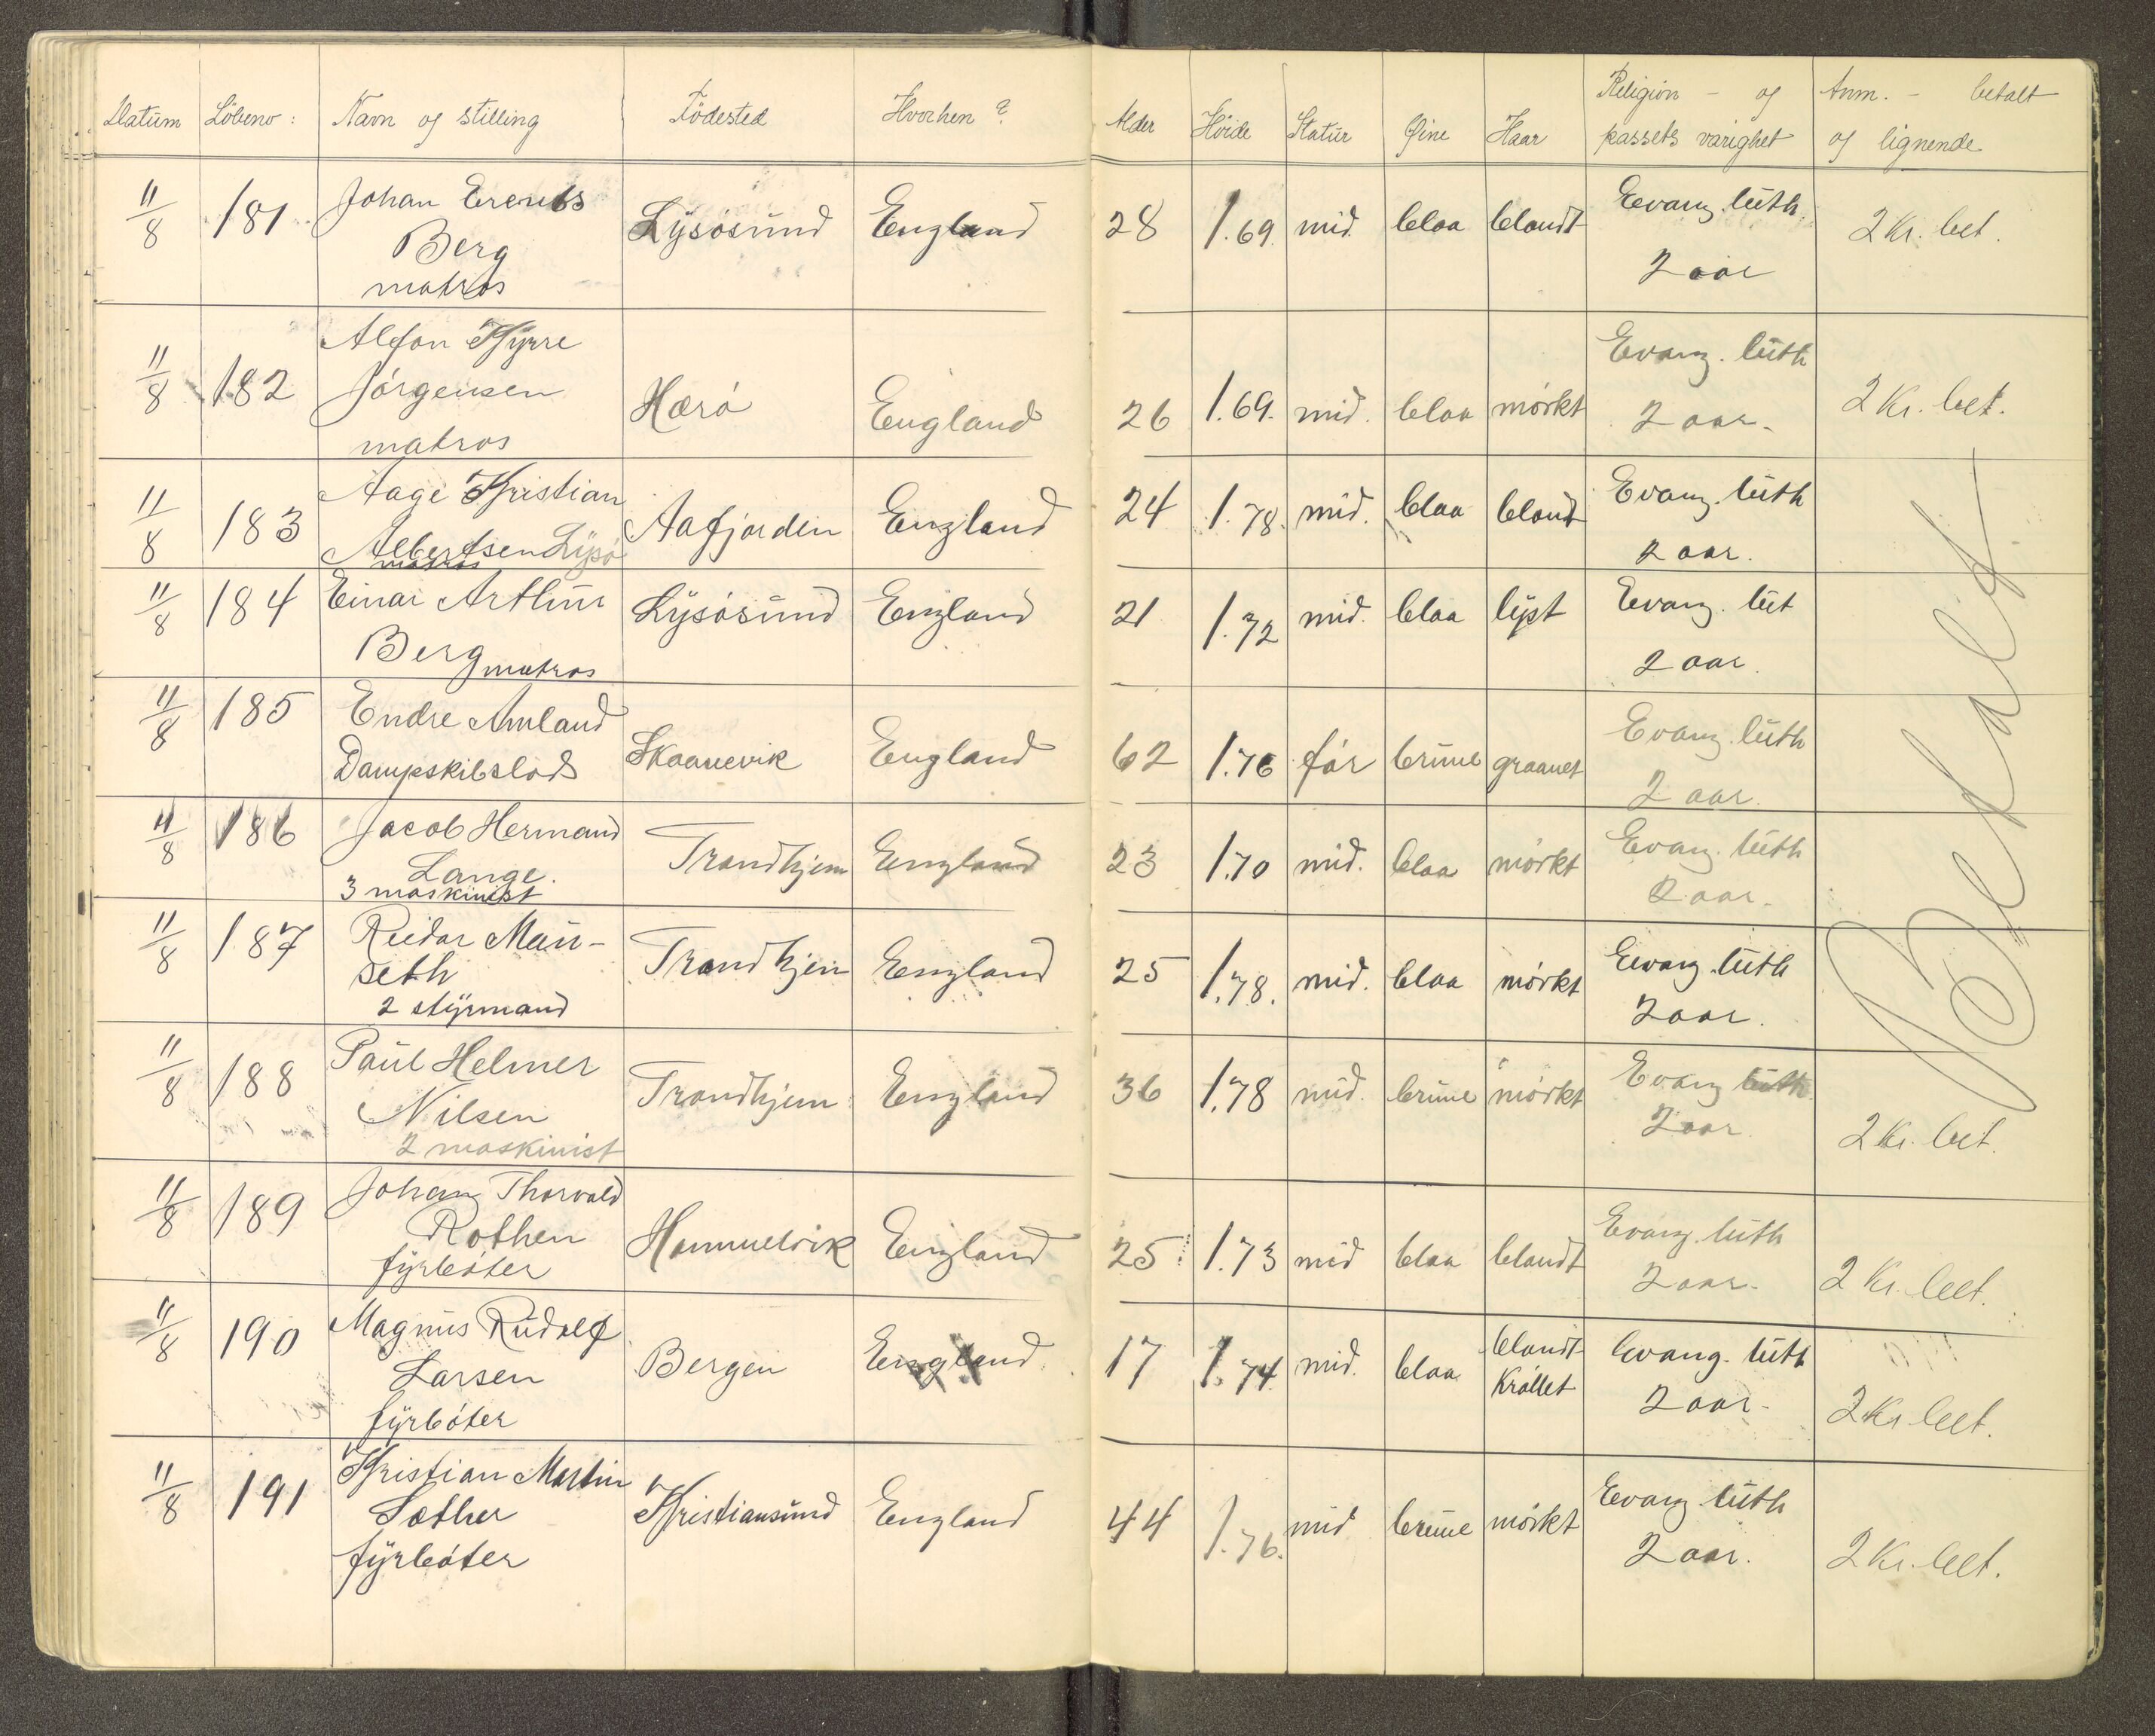 Datum Löbeno: Navn og stilling Födested Hvorhen? Alder Höide Statur Öine Haar Religion - og passets varighet Anm. - betalt og lignende
11/8 181 Johan Berg matros Lysösund England 28 1.69 mid. blaa blondt Evang. luth. 2 aar 2 Kr. bet.
11/8 182 Alfon Kyrre Jörgensen matros Herö England 26 1.69. mid. blaa mörkt Evang. luth 2 aar. 2 Kr. bet.
11/8 183 Aage Kristian Albertsen Lysö matros Aafjorden England 24 1.78. mid. blaa blondt Evang. luth 2 aar.
11/8 184 Einar Arthur Berg matros Lysösund England 21 1.72 mid. blaa lyst Evang. lut 2 aar.
11/8 185 Endre Amland Dampskibslods Skaanevik England 62 1.76 för brune graanet Evang. luth 2 aar.
11/8 186 Jacob Hermand Lange. 3 maskinist Trondhjem England 23 1.70 mid. blaa mörkt Evang. luth 2 aar.
11/8 187 Reidar Mauseth 2 styrmand Trondhjem England 25 1.78. mid. blaa mörkt Evang. luth 2 aar.
11/8 188 Paul Helmer Nilsen 2 maskinist Trondhjem England 36 1.78 mid. brune mörkt Evang luth. 2 aar. 2 Kr. bet.
Betalt
11/8 189 Johan Thorvald Rothen fyrböter Hommelvik England 25 1.73 mid blaa blondt Evang. luth 2 aar. 2 Kr. bet.
11/8 190 Magnus Rudolf Larsen fyrböter Bergen England. 17 1.74. mid. blaa blondt Kröllet Evang. luth 2 aar. 2 Kr. bet.
11/8 191 Kristian Martin Sæther fyrböter Kristiansund England 44 1.76. mid brune mörkt Evang. luth 2 aar. 2 Kr. bet.